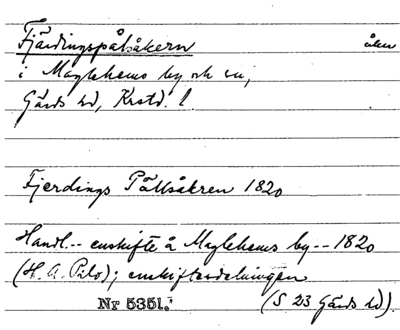 Fjärdingspålsåkern åker
i Maglehems by och sn,
Gärds hd, Krstd. l.
Fjerdings Pållsåkren 1820
Handl.. enskifte å Maglehems by -- 1820
(H. A. Pilo); enskiftesdelningen
Nr 5351. (S 23 Gärds hd).